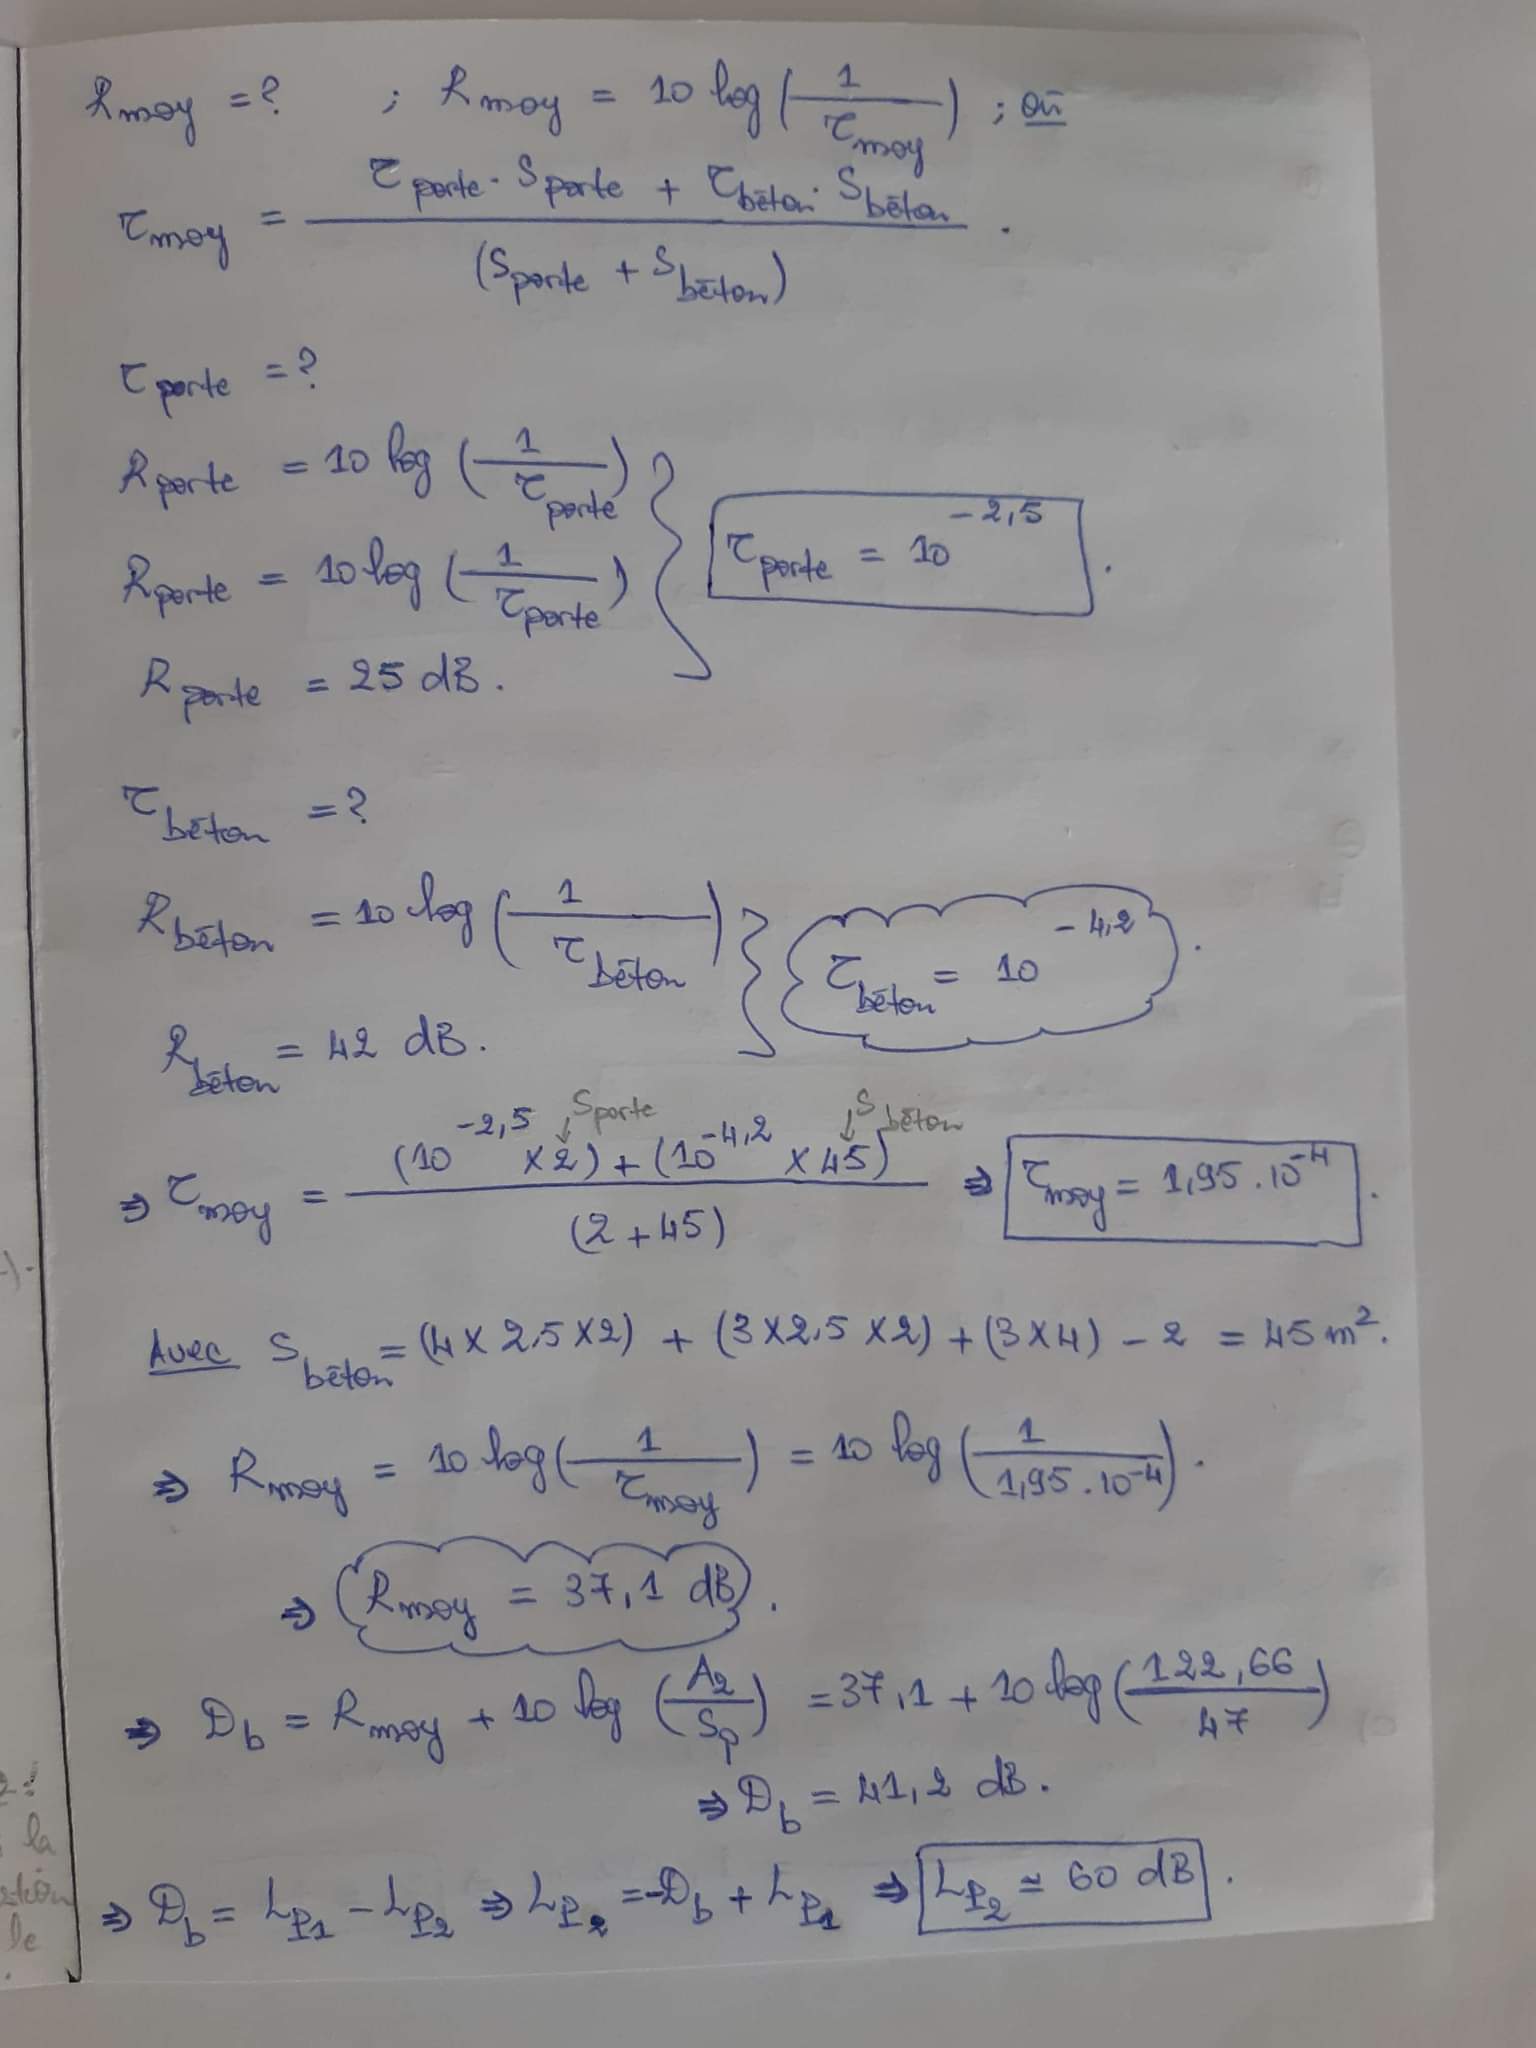 Rmoy = ? ; Rmoy = 10 log (1/τmoy) ; où
τmoy = (τporte · Sporte + τbéton · Sbéton) / (Sporte + Sbéton) .
τporte = ?
Rporte = 10 log (1/τporte)
Rporte = 10 log (1/τporte)
τporte = 10^-2,5 .
Rporte = 25 dB .
τbéton = ?
Rbéton = 10 log (1/τbéton)
τbéton = 10^-4,2 .
Rbéton = 42 dB .
Sporte
Sbéton
⇒ τmoy = ((10^-2,5 × 2) + (10^-4,2 × 45)) / (2 + 45) ⇒ τmoy = 1,95 . 10^-4 .
Avec Sbéton = (4 × 2,5 × 2) + (3 × 2,5 × 2) + (3 × 4) - 2 = 45 m² .
⇒ Rmoy = 10 log (1/τmoy) = 10 log (1/1,95 . 10^-4) .
⇒ Rmoy = 37,1 dB .
⇒ Db = Rmoy + 10 log (A2/Sp) = 37,1 + 10 log (122,66/47)
⇒ Db = 41,2 dB .
⇒ Db = LP1 - LP2 ⇒ LP2 = -Db + LP1 ⇒ LP2 ≃ 60 dB .
la
le